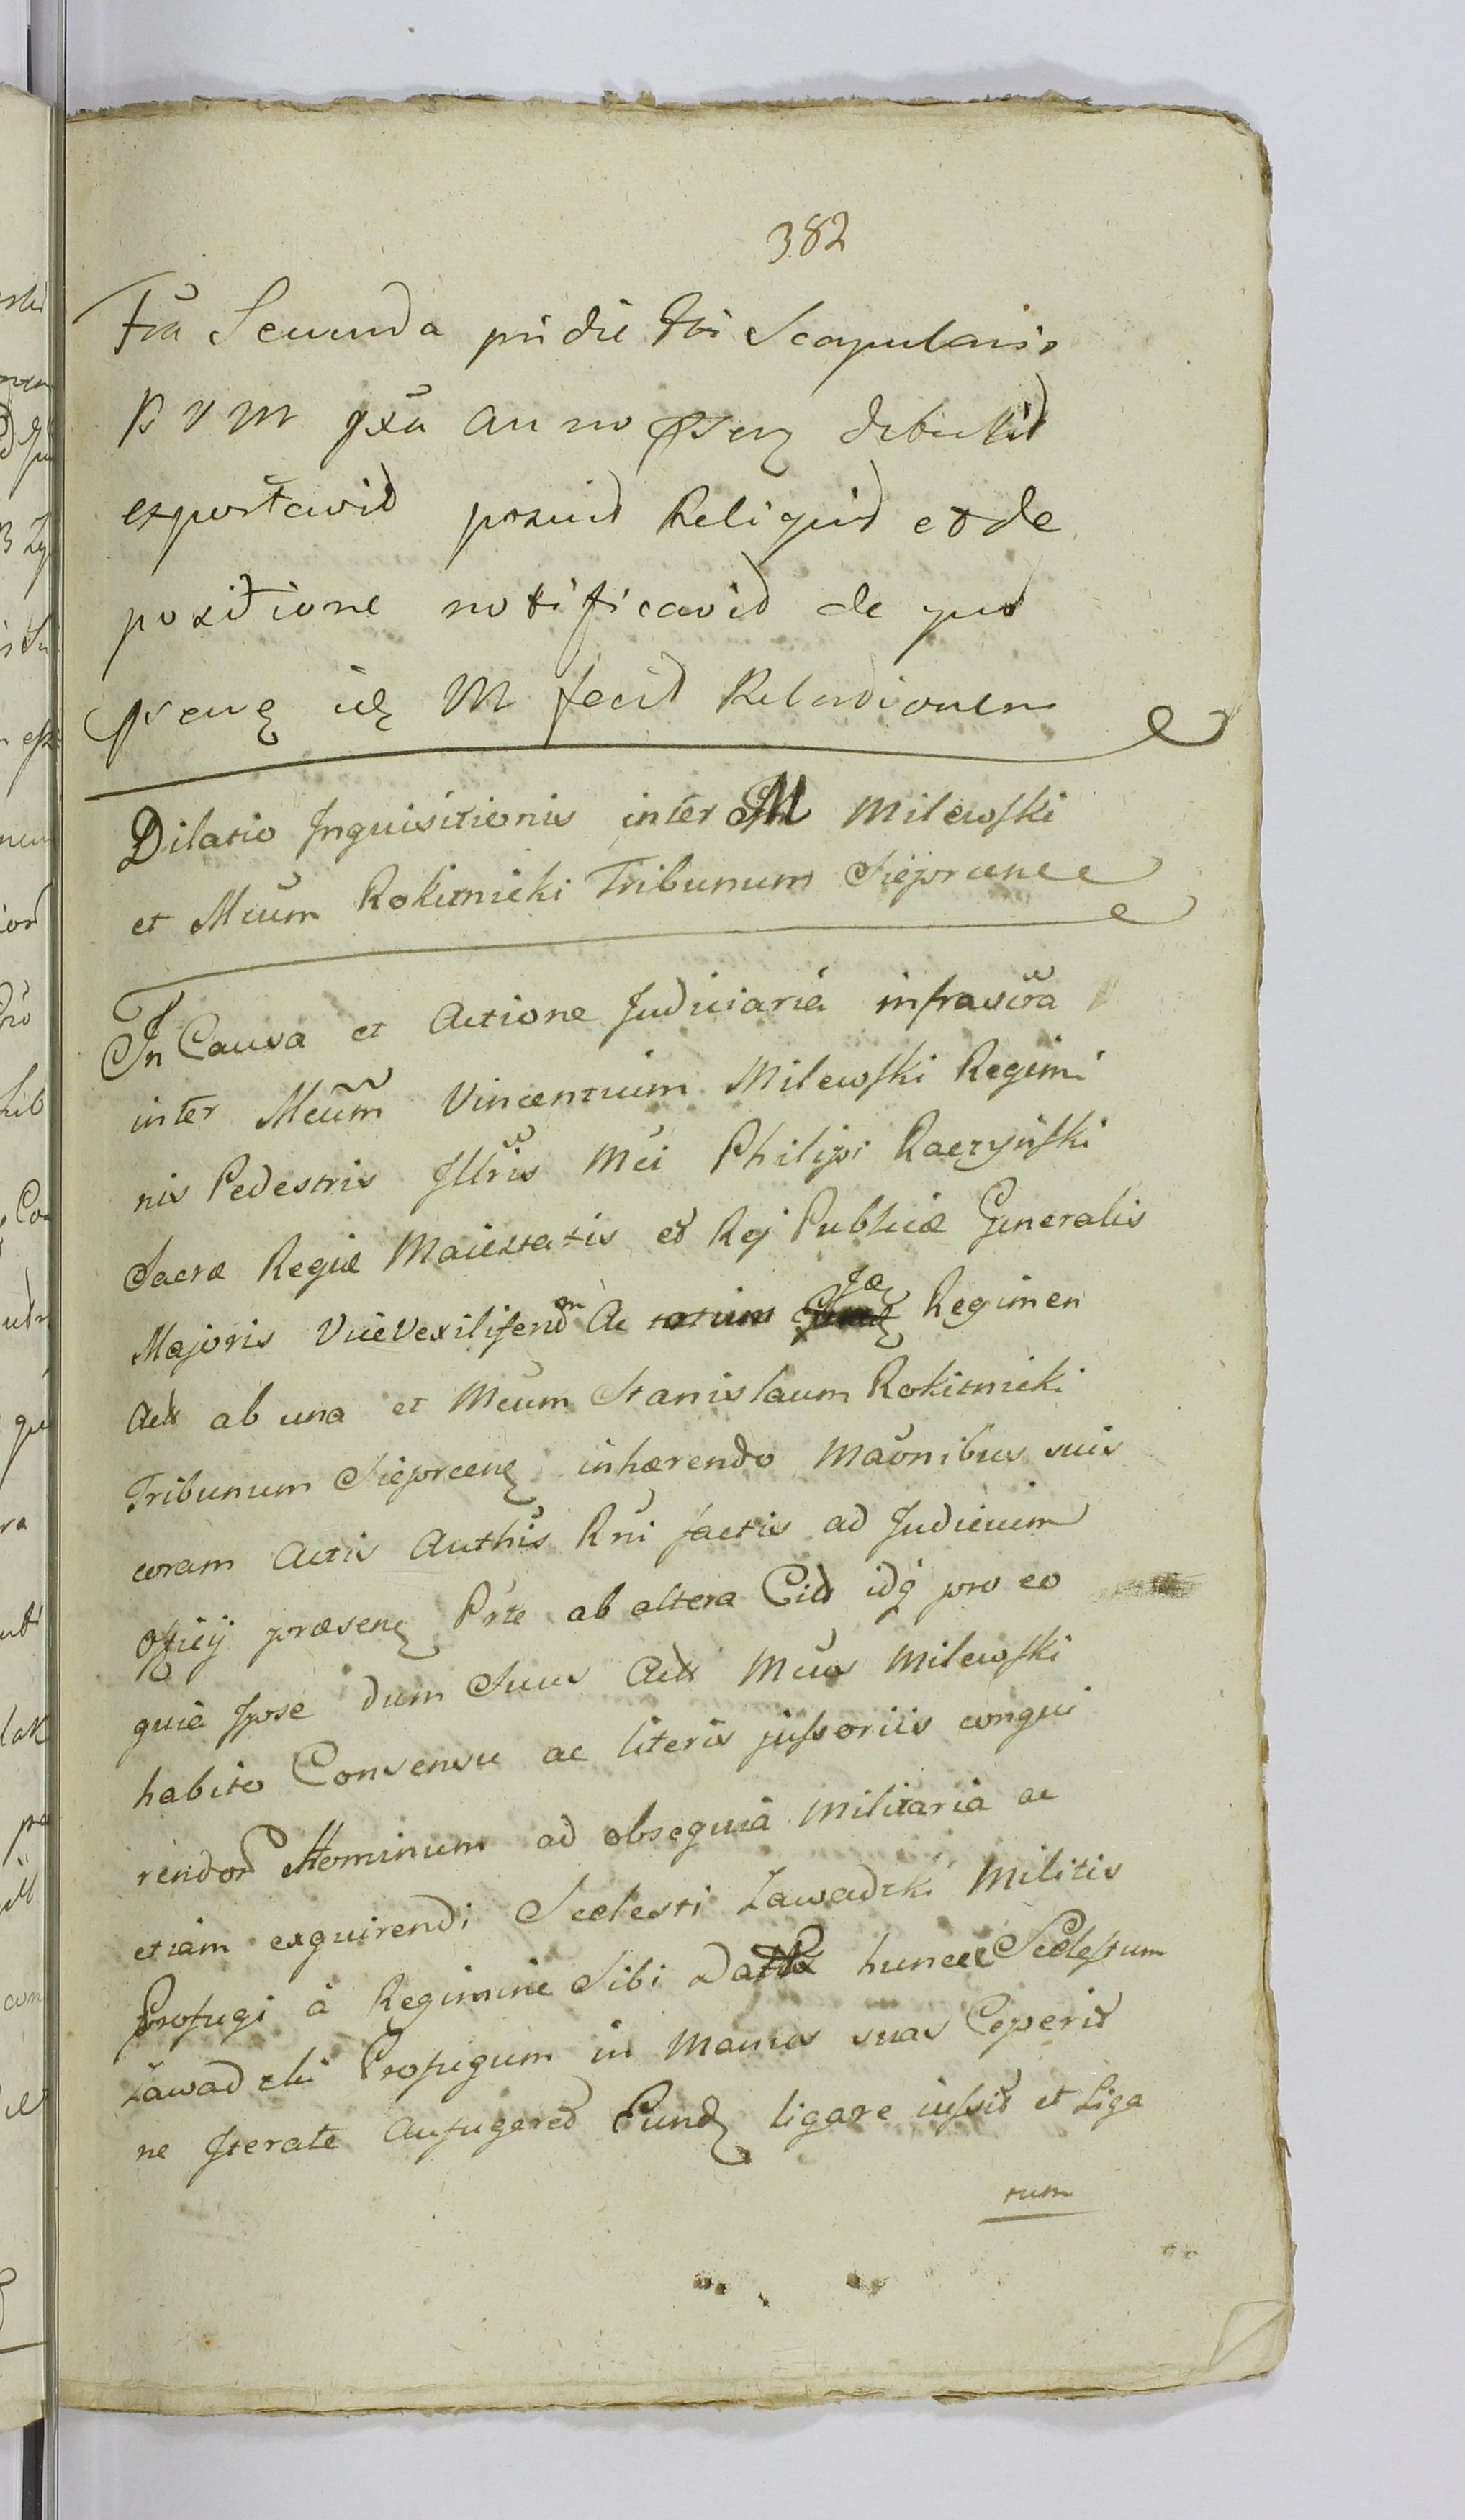 382
Fria Secunda pridie Fti Scapularis
B V M pxa anno Psenz debite
exportavit posuit Reliquit et de
positione notificavit de quo
psenz idz M fecit Relationem
Dilatio Inquisitionis inter M Milewski
et Mcum Rokitnicki Tribunum Sieprcene
In Causa et Actione Judiciaria infrascra
inter Mcum Vincentium Milewski Regimi
nis Pedestris Illris Mci Philipi Raczyński
Sacræ Regiæ Maiestatis et Rej Publicæ Generalis
Majoris ViceVexiliferum Ac totum Regimen
Act ab una et Mcum Stanislaum Rokitnicki
Tribunum Sieprcenz inhærendo Maonibus suis
coram Actis Authis Rni factis ad Judicium
Officij præsenz Prte ab altera Cit idq pro eo
quia Ipse dum Suus Act Mcus Milewski
habito Consensu ac literis passoriis conqui
rendor Hominum ad obsequia Militaria ac
etiam exquirendi Scelesti Zawadzki Militis
Profugi à Regimine Sibi hunce Scelestum
Zawadzki Profugum in Manus suas Ceperit
ne Iterate Aufugeret Eundz ligare iussit et Liga
tum